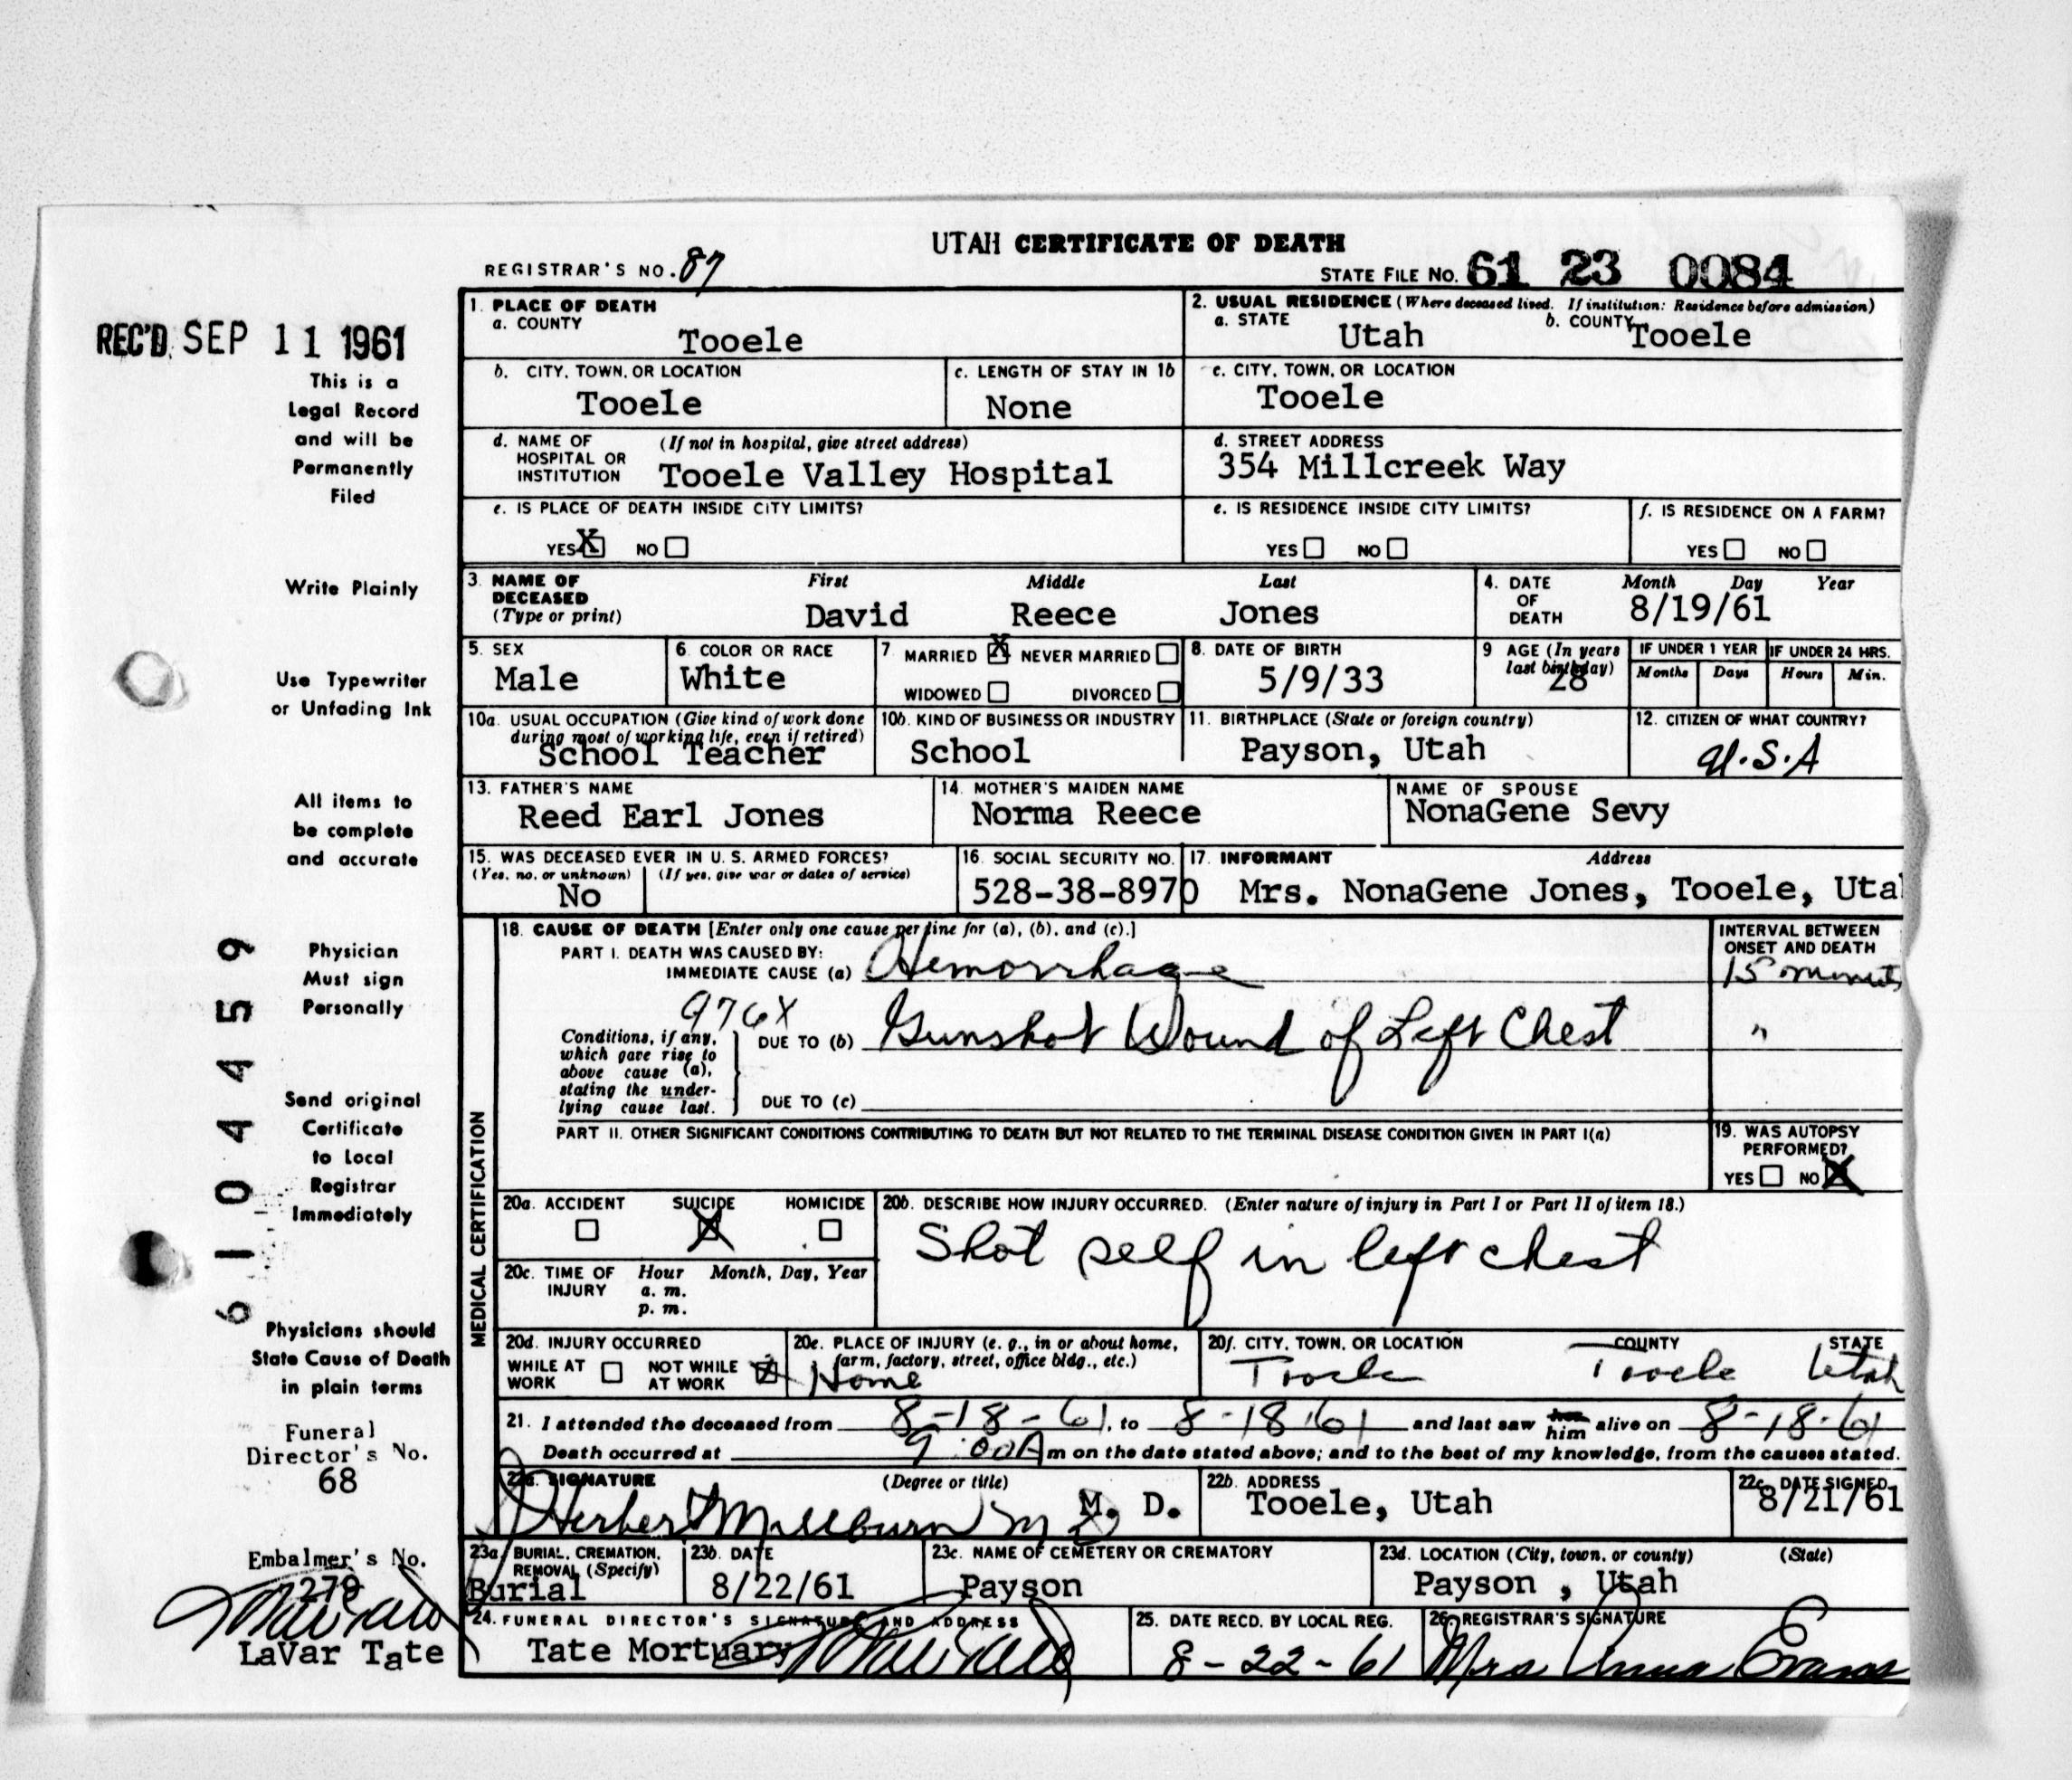 UTAH CERTIFICATE OF DEATH
REGISTRAR'S NO. 87
STATE FILE NO. 61 23 0084
REC'D SEP 11 1961
This is a
Legal Record
and will be
Permanently
Filed
Write Plainly
Use Typewriter
or Unfading Ink
All items to
be complete
and accurate
Physician
Must sign
Personally
Send original
Certificate
to Local
Registrar
Immediately
Physicians should
State Cause of Death
in plain terms
Funeral
Director's No.
68
Embalmer's No.
279
LaVar Tate
6104459
1. PLACE OF DEATH
a. COUNTY
Tooele
2. USUAL RESIDENCE (Where deceased lived. If institution: Residence before admission)
a. STATE
Utah
b. COUNTY
Tooele
b. CITY, TOWN, OR LOCATION
Tooele
c. LENGTH OF STAY IN 1b
None
c. CITY, TOWN, OR LOCATION
Tooele
d. NAME OF HOSPITAL OR INSTITUTION (If not in hospital, give street address)
Tooele Valley Hospital
d. STREET ADDRESS
354 Millcreek Way
e. IS PLACE OF DEATH INSIDE CITY LIMITS?
YES X NO
e. IS RESIDENCE INSIDE CITY LIMITS?
YES NO
f. IS RESIDENCE ON A FARM?
YES NO
3. NAME OF DECEASED (Type or print)
First Middle Last
David Reece Jones
4. DATE OF DEATH
Month Day Year
8/19/61
5. SEX
Male
6. COLOR OR RACE
White
7. MARRIED X NEVER MARRIED
WIDOWED DIVORCED
8. DATE OF BIRTH
5/9/33
9 AGE (In years last birthday)
28
IF UNDER 1 YEAR
Months Days
IF UNDER 24 HRS.
Hours Min.
10a. USUAL OCCUPATION (Give kind of work done during most of working life, even if retired)
School Teacher
10b. KIND OF BUSINESS OR INDUSTRY
School
11. BIRTHPLACE (State or foreign country)
Payson, Utah
12. CITIZEN OF WHAT COUNTRY?
U.S.A
13. FATHER'S NAME
Reed Earl Jones
14. MOTHER'S MAIDEN NAME
Norma Reece
NAME OF SPOUSE
NonaGene Sevy
15. WAS DECEASED EVER IN U. S. ARMED FORCES?
(Yes, no, or unknown) (If yes, give war or dates of service)
No
16. SOCIAL SECURITY NO.
528-38-8970
17. INFORMANT Address
Mrs. NonaGene Jones, Tooele, Uta
MEDICAL CERTIFICATION
18. CAUSE OF DEATH [Enter only one cause per line for (a), (b), and (c).]
PART I. DEATH WAS CAUSED BY:
IMMEDIATE CAUSE (a) Hemorrhage
INTERVAL BETWEEN ONSET AND DEATH
15 minutes
976X
Conditions, if any, which gave rise to above cause (a), stating the underlying cause last.
DUE TO (b) Gunshot Wound of Left Chest
"
DUE TO (c)
PART II. OTHER SIGNIFICANT CONDITIONS CONTRIBUTING TO DEATH BUT NOT RELATED TO THE TERMINAL DISEASE CONDITION GIVEN IN PART I(a)
19. WAS AUTOPSY PERFORMED?
YES NO X
20a. ACCIDENT SUICIDE HOMICIDE
X
20b. DESCRIBE HOW INJURY OCCURRED. (Enter nature of injury in Part I or Part II of item 18.)
Shot self in left chest
20c. TIME OF INJURY Hour Month, Day, Year
a. m.
p. m.
20d. INJURY OCCURRED
WHILE AT WORK NOT WHILE AT WORK X
20e. PLACE OF INJURY (e. g., in or about home, farm, factory, street, office bldg., etc.)
Home
20f. CITY, TOWN, OR LOCATION COUNTY STATE
Tooele Tooele Utah
21. I attended the deceased from 8-18-61, to 8-18-61 and last saw her him alive on 8-18-61
Death occurred at 9:00A m on the date stated above; and to the best of my knowledge, from the causes stated.
22a. SIGNATURE (Degree or title)
Herbert Millburn MD M. D.
22b. ADDRESS
Tooele, Utah
22c. DATE SIGNED
8/21/61
23a. BURIAL, CREMATION, REMOVAL (Specify)
Burial
23b. DATE
8/22/61
23c. NAME OF CEMETERY OR CREMATORY
Payson
23d. LOCATION (City, town, or county) (State)
Payson , Utah
24. FUNERAL DIRECTOR'S SIGNATURE AND ADDRESS
Tate Mortuary
25. DATE RECD. BY LOCAL REG.
8-22-61
26. REGISTRAR'S SIGNATURE
Mrs Anna Evans